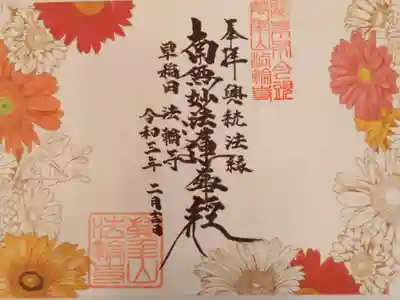 奉拝 興統法縁
南無妙法蓮華経
早稲田 法輪寺
令和三年 二月